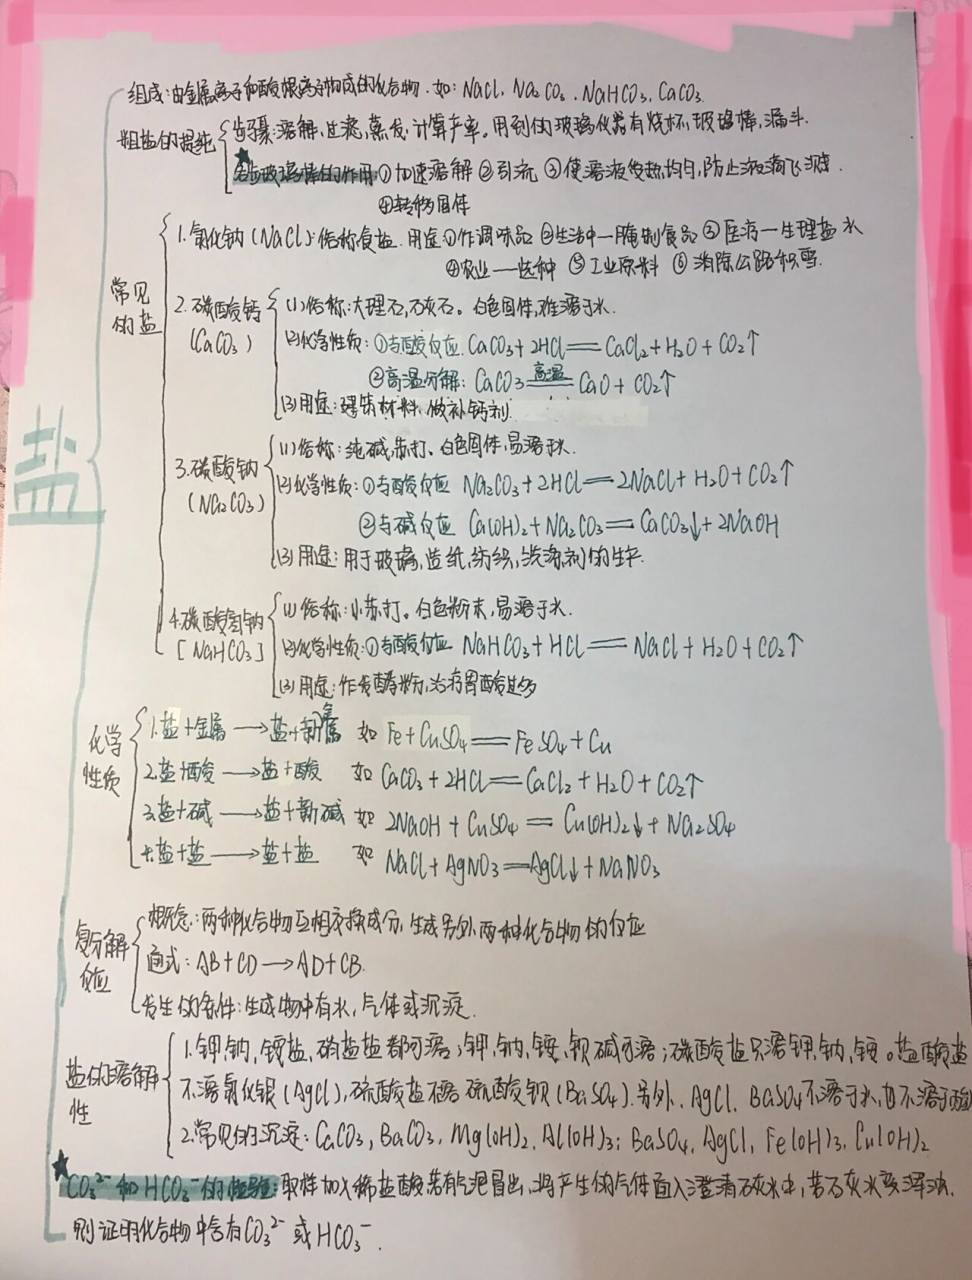 盐
组成:由金属离子和酸根离子构成的化合物.如:NaCl、Na₂CO₃、NaHCO₃、CaCO₃.
粗盐的提纯
步骤:溶解,过滤,蒸发,计算产率。用到的玻璃仪器有烧杯,玻璃棒,漏斗.
玻璃棒的作用:①加速溶解 ②引流 ③使溶液受热均匀,防止液滴飞溅.
④转移固体
常见的盐
1.氯化钠(NaCl):俗称食盐.用途①作调味品 ②生活中—腌制食品 ③医疗—生理盐水
④农业——选种 ⑤工业原料 ⑥消除公路积雪.
2.碳酸钙(CaCO₃)
(1)俗称:大理石,石灰石。白色固体,难溶于水.
(2)化学性质:①与酸反应.CaCO₃+2HCl══CaCl₂+H₂O+CO₂↑
②高温分解:CaCO₃ ══高温══ CaO+CO₂↑
(3)用途:建筑材料,做补钙剂.
3.碳酸钠(Na₂CO₃)
(1)俗称:纯碱,苏打。白色固体,易溶于水.
(2)化学性质:①与酸反应 Na₂CO₃+2HCl══2NaCl+H₂O+CO₂↑
②与碱反应 Ca(OH)₂+Na₂CO₃══CaCO₃↓+2NaOH
(3)用途:用于玻璃,造纸,纺织,洗涤剂的生产.
4.碳酸氢钠[NaHCO₃]
(1)俗称:小苏打。白色粉末,易溶于水.
(2)化学性质:①与酸反应 NaHCO₃+HCl══NaCl+H₂O+CO₂↑
(3)用途:作发酵粉,治疗胃酸过多
化学性质
1.盐+金属→盐+新金属 如 Fe+CuSO₄══FeSO₄+Cu
2.盐+酸→盐+酸 如 CaCO₃+2HCl══CaCl₂+H₂O+CO₂↑
3.盐+碱→盐+新碱 如 2NaOH+CuSO₄══Cu(OH)₂↓+Na₂SO₄
4.盐+盐→盐+盐 如 NaCl+AgNO₃══AgCl↓+NaNO₃
复分解反应
概念:两种化合物互相交换成分,生成另外两种化合物的反应
通式:AB+CD→AD+CB.
发生的条件:生成物中有水,气体或沉淀.
盐的溶解性
1.钾,钠,铵盐,硝盐盐都可溶;钾,钠,铵,钡碱可溶;碳酸盐只溶钾,钠,铵。盐酸盐
不溶氯化银(AgCl),硫酸盐不溶硫酸钡(BaSO₄).另外,AgCl、BaSO₄不溶于水,也不溶于酸
2.常见的沉淀:CaCO₃,BaCO₃,Mg(OH)₂,Al(OH)₃;BaSO₄,AgCl,Fe(OH)₃,Cu(OH)₂
CO₃²⁻和HCO₃⁻的检验:取样加入稀盐酸若有气泡冒出,将产生的气体通入澄清石灰水中,若石灰水变浑浊.
则证明化合物中含有CO₃²⁻或HCO₃⁻.